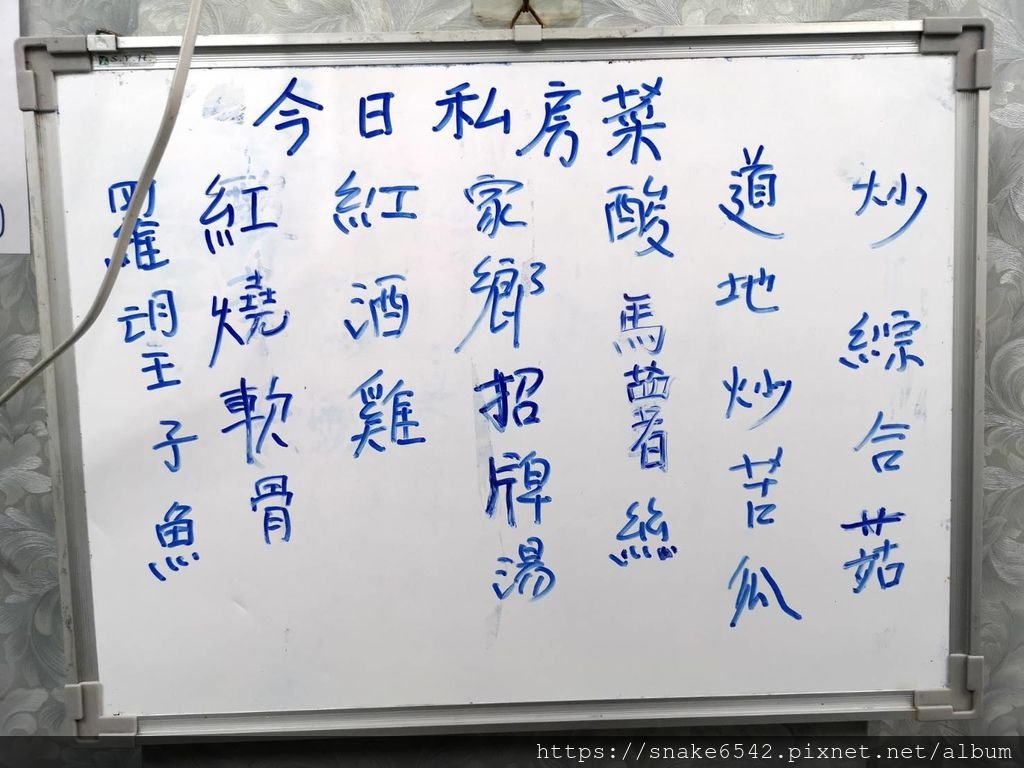 今日私房菜
炒綜合菇
道地炒苦瓜
酸馬薯絲
家鄉招牌湯
紅酒雞
紅燒軟骨
羅望子魚
https://snake6542.pixnet.net/album